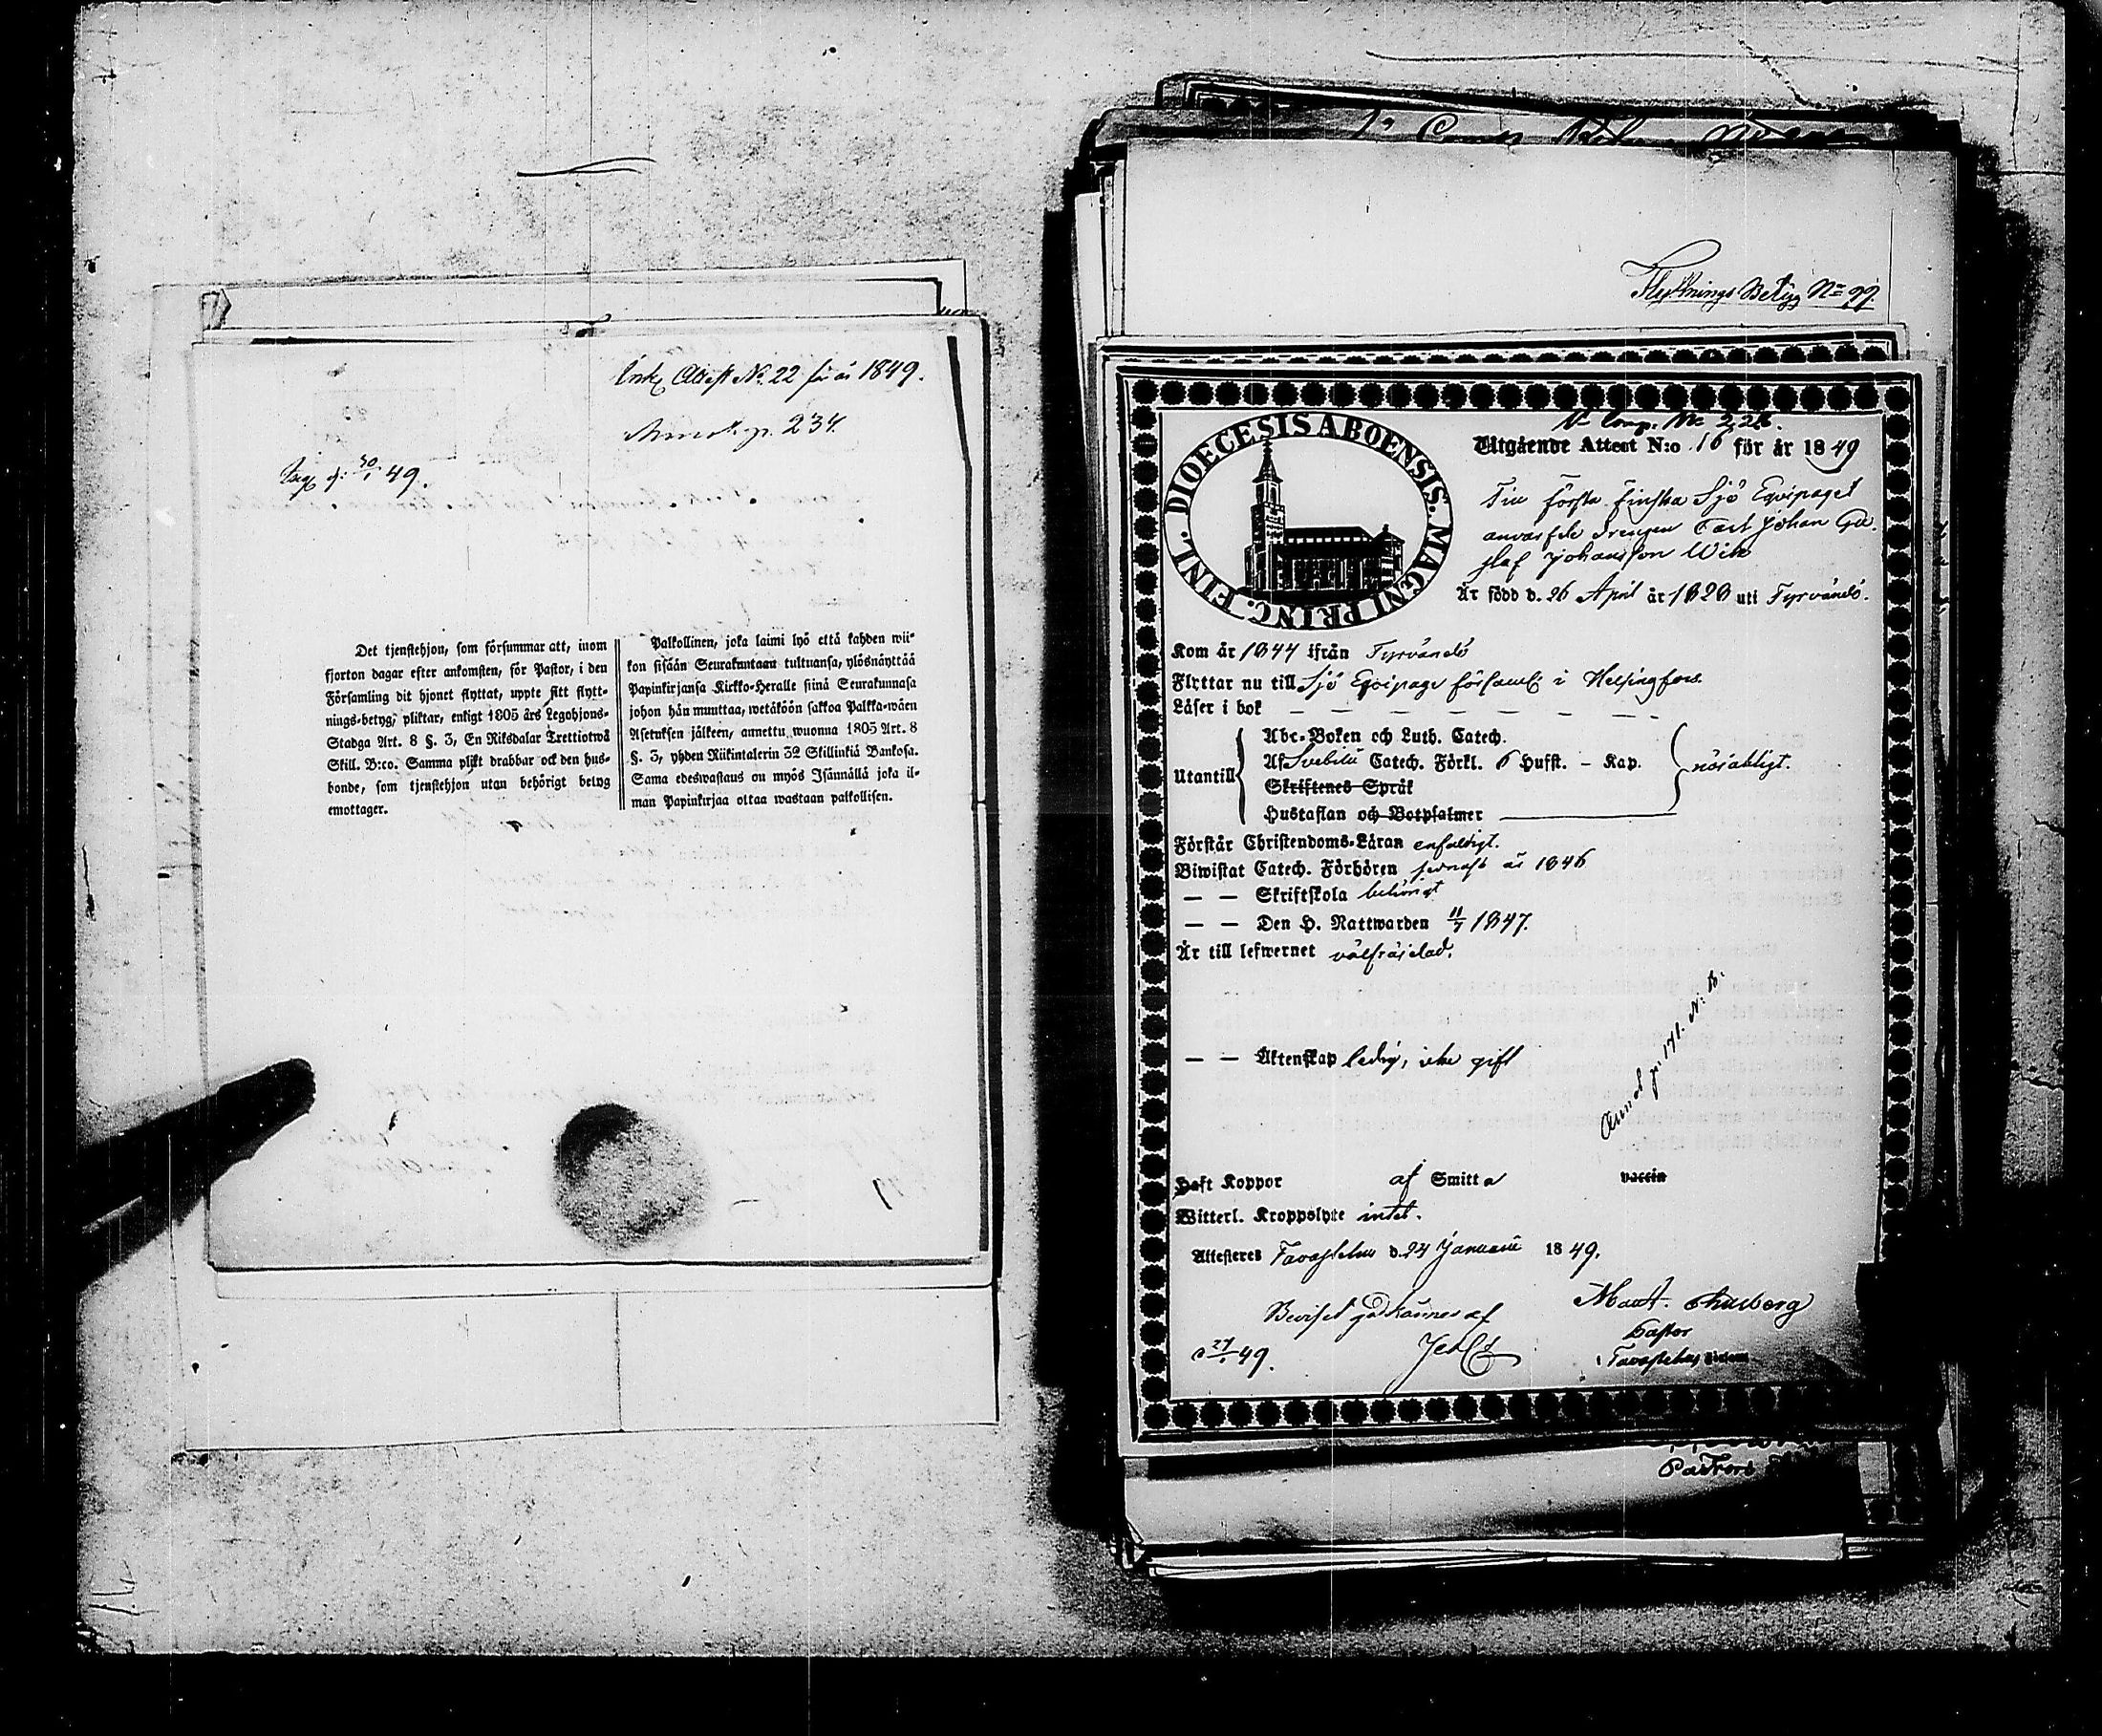 Ink. Attest No. 22 för år 1849.
p. 234.
d: 30/1 49.
Det tjenstehjon, som försummar att, inom
fjorton dagar efter ankomsten, för Pastor, i den
Församling dit hjonet flyttat, uppte sitt flytt-
nings-betyg, pliktar, enligt 1805 års Legohjons-
Stadga Art. 8 §. 3, En Riksdalar Trettiotwå
Skill. B:co. Samma plikt drabbar ock den hus-
bonde, som tjenstehjon utan behörigt betyg
emottager.
Palkollinen, joka laimi lyö että kahden wii-
kon sisään Seurakuntaan tultuansa, ylösnäyttää
Papinkirjansa Kirkko-Heralle siinä Seurakunnasa
johon hän muuttaa, wetäköön sakkoa Palkka-wäen
Asetuksen jälkeen, annettu wuonna 1805 Art. 8
§. 3, yhden Riikintalerin 32 Skillinkiä Bankosa.
Sama edeswastaus on myös Isännällä joka il-
man Papinkirjaa ottaa wastaan palkollisen.
Flyttnings Betyg No 99.
DIOECESIS ABOENSIS. MAGNI PRINC. FINL.
Utgående Attest N:o 16 för år 1849
Till första Finska Sjö Equipaget
anvärfde drengen Carl Johan Gu-
staf Johansson Wik
Är född d. 26 April år 1828 uti Tyrvändö.
Kom år 1844 ifrån Tyrvändö
Flyttar nu till Sjö Equipage församl. i Helsingfors.
Läser i bok — — — — — — —
Abc-Boken och Luth. Catech.
Utantill Af Svebilii Catech. Förkl. 6 Hufst. - Kap. nöjaktigt.
Skriftenes Språk
Hustaflan och Botpsalmer
Förstår Christendoms-Läran enfaldigt.
Biwistat Catech. Förhören senast år 1846
— — Skriftskola behörigt
— — Den H. Nattwarden 11/7 1847.
Är till lefwernet välfräjdad.
— — Äktenskap ledig, icke gift
p. 171. No: 18.
Haft Koppor af Smitta vaccin
Witterl. Kroppslyte intet.
Attesteras Tavastehus d. 24 Januarii 1849.
Beviset godkännes af
d 27/1 49.
Pastor
i Tavastehus
Pastors